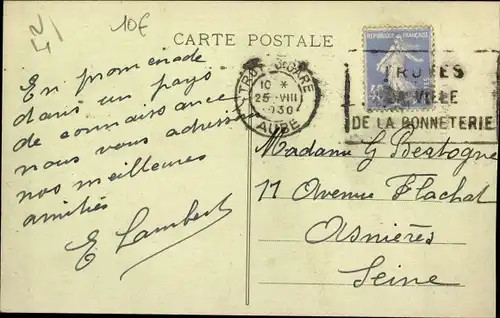 10€
CARTE POSTALE
REPUBLIQUE FRANÇAISE
TROYES GARE
10 *
25 · VIII
1930
AUBE
TROYES
LA VILLE
DE LA BONNETERIE
En promenade
dans un pays
de connaissance
nous vous adressons
nos meilleures
amitiés
E Lambert
Madame G Bertogne
11 Avenue Flachat
Asnières
Seine